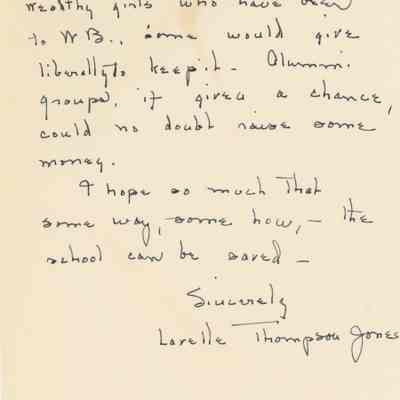 wealthy girls who have been
to W B., some would give
liberally to keep it - Alumni
groups, if given a chance,
could no doubt raise some
money.
I hope so much that
some way, some how, - the
school can be saved -
Sincerely
Lorelle Thompson Jones